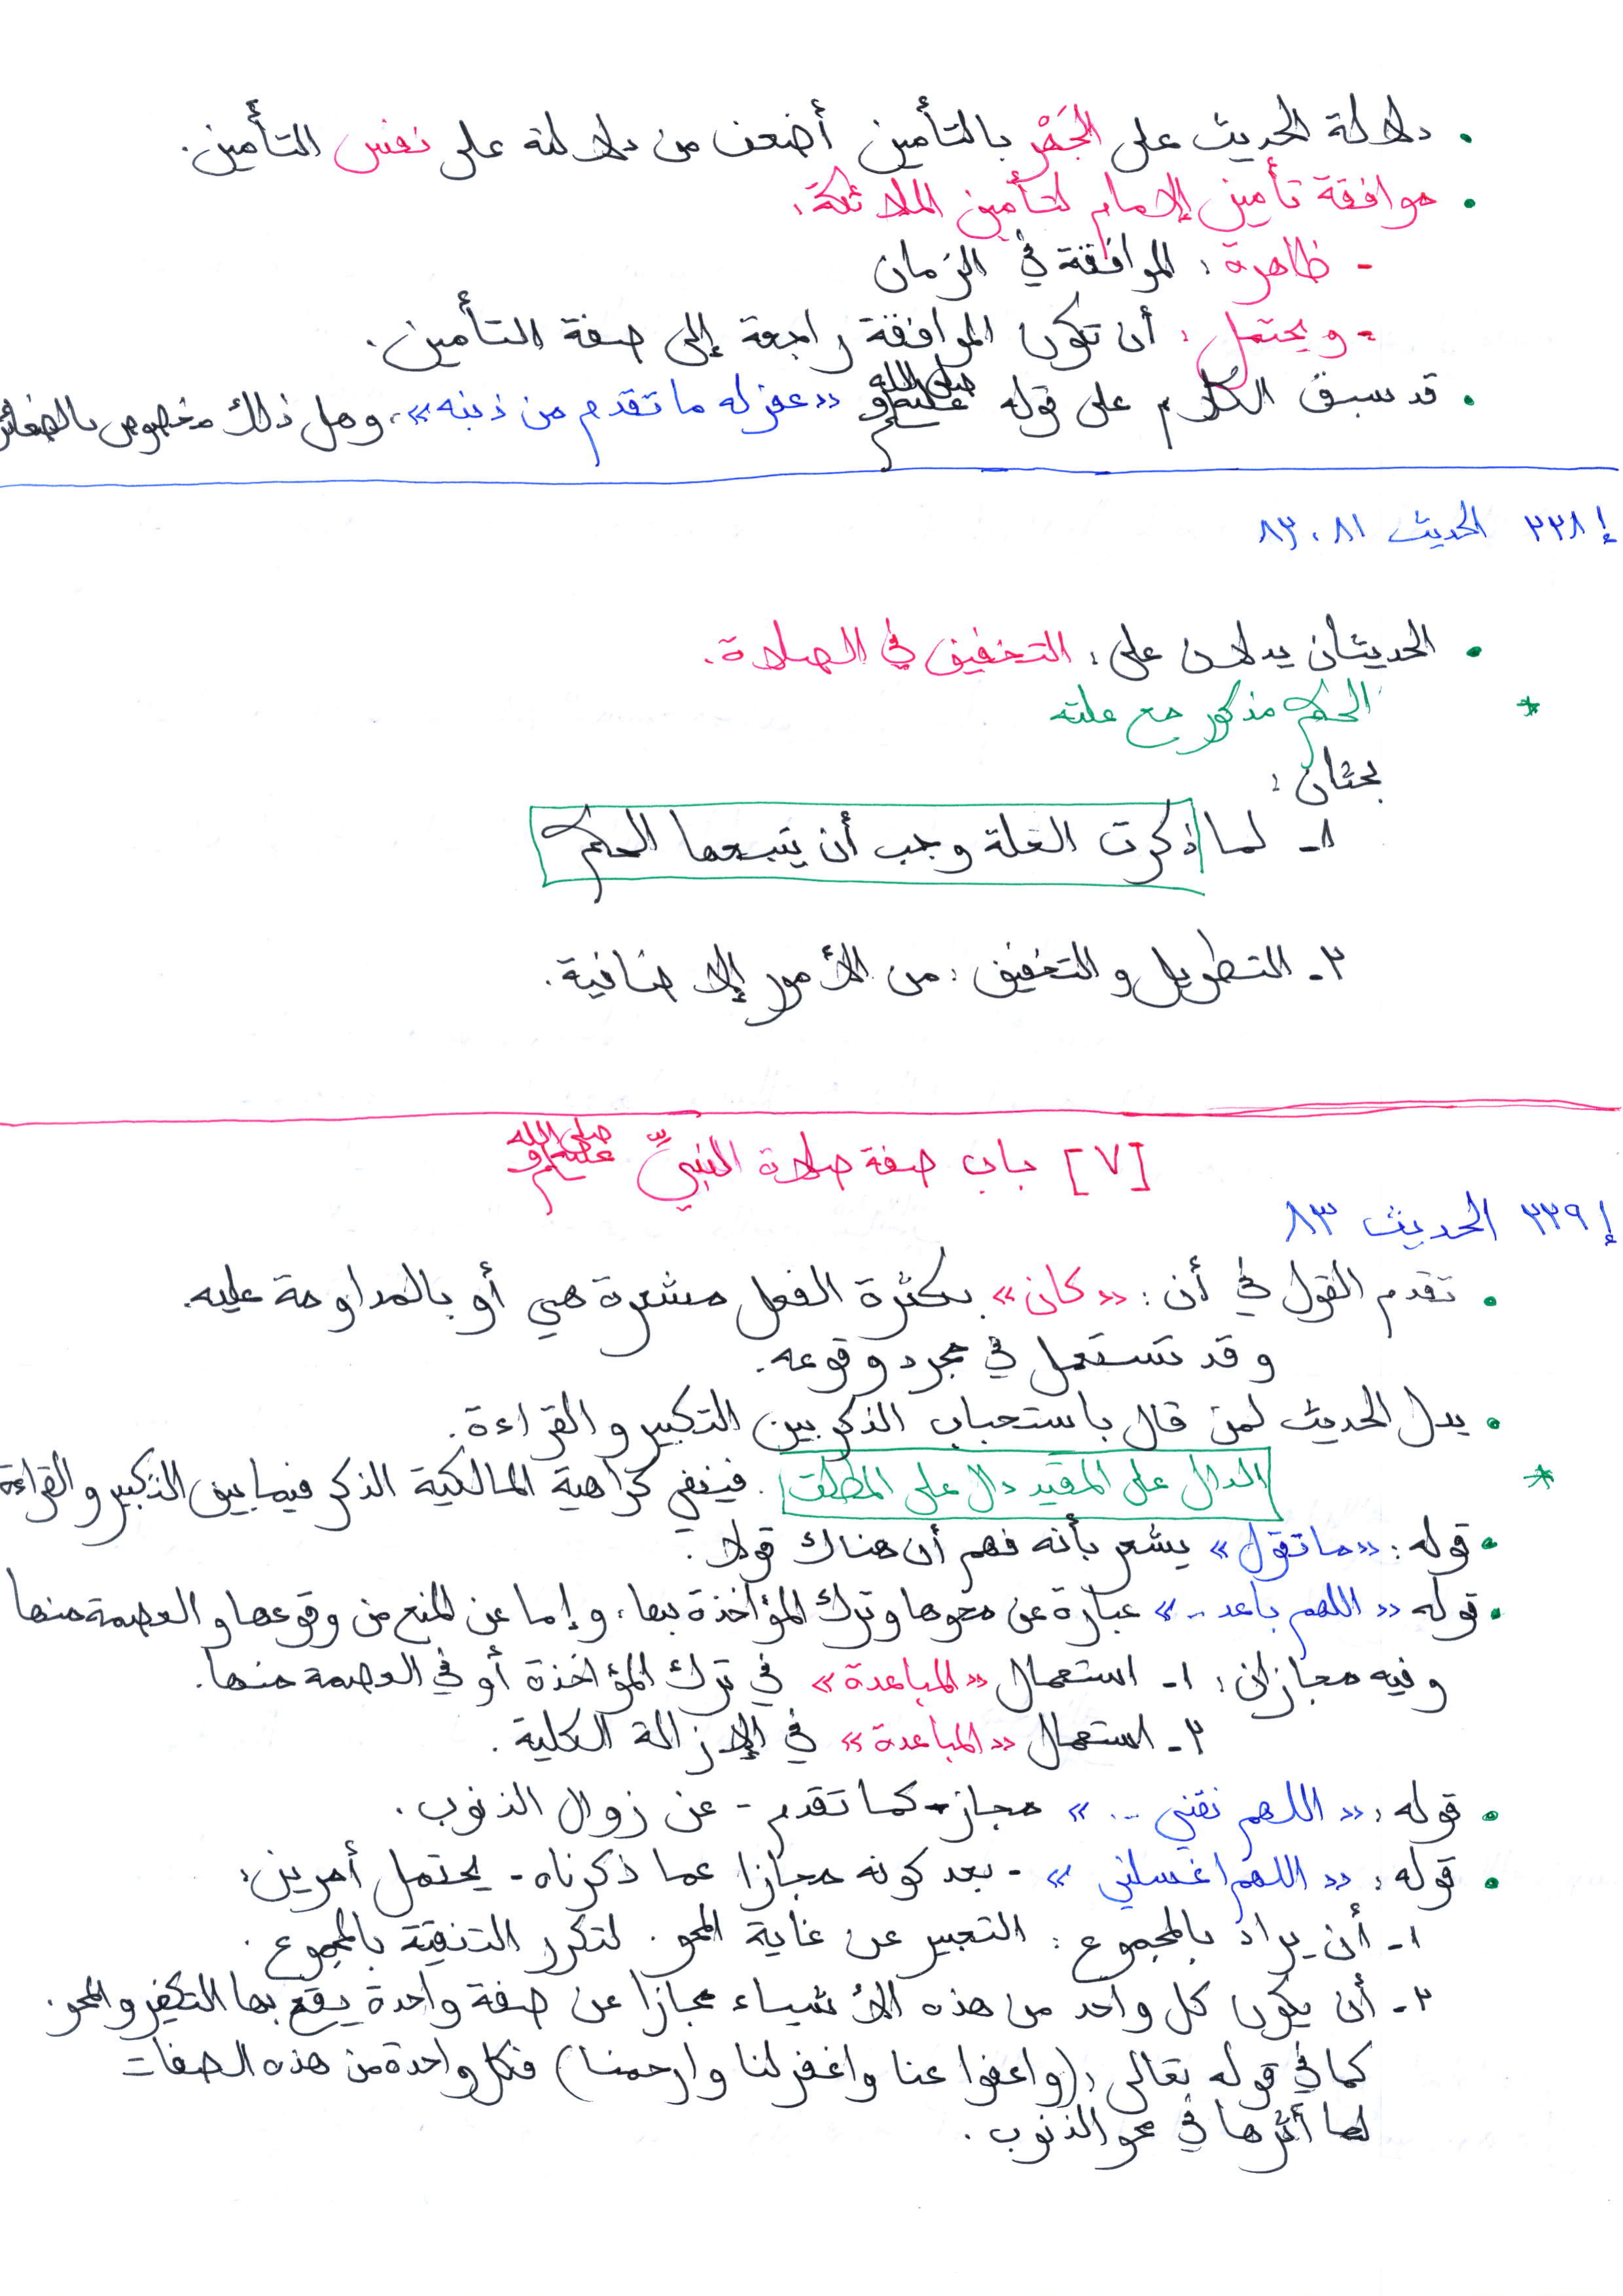 • دلالة الحديث على الجَهْر بالتأمين أضعف من دلالته على نفس التأمين.
• موافقة تأمين الإمام لتأمين الملائكة:
- ظاهرة: الموافقة في الزمان
- ويحتمل: أن تكون الموافقة راجعة إلى صفة التأمين.
• قد سبق الكلام على قوله صلى الله عليه وسلم «غفر له ما تقدم من ذنبه»، وهل ذلك مخصوص بالصغائر
إ ٢٢٨ الحديث ٨١، ٨٢
• الحديثان يدلان على: التخفيف في الصلاة.
* الحكم مذكور مع علته
بحثان:
١- لما ذكرت العلة وجب أن يتبعها الحكم
٢- التطويل والتخفيف: من الأمور الإضافية.
[٧] باب صفة صلاة النبيِّ صلى الله عليه وسلم
إ ٢٢٩ الحديث ٨٣
• تقدم القول في أن: «كان» بكثرة الفعل مشعرة هي أو بالمداومة عليه.
وقد تستعمل في مجرد وقوعه.
• يدل الحديث لمن قال باستحباب الذكر بين التكبير والقراءة.
* الدال على المقيد دال على المطلق. فينفي كراهية المالكية الذكر فيما بين التكبير والقراءة
• قوله: «ما تقول» يشعر بأنه فهم أن هناك قولا.
• قوله «اللهم باعد..» عبارة عن محوها وترك المؤاخذة بها، وإما عن المنع من وقوعها والعصمة منها
وفيه مجازان: ١- استعمال «المباعدة» في ترك المؤاخذة أو في العصمة منها.
٢- استعمال «المباعدة» في الإزالة الكلية.
• قوله: «اللهم نقني ...» مجاز - كما تقدم - عن زوال الذنوب.
• قوله: «اللهم اغسلني» - بعد كونه مجازا عما ذكرناه - يحتمل أمرين:
١- أن يراد بالمجموع: التعبير عن غاية المحو. لتكرر التنقية بالمجموع.
٢- أن يكون كل واحد من هذه الأشياء مجازا عن صفة واحدة يقع بها التكفير والمحو.
كما في قوله تعالى: (واعفوا عنا واغفر لنا وارحمنا) فكل واحدة من هذه الصفات
لها أثرها في محو الذنوب.